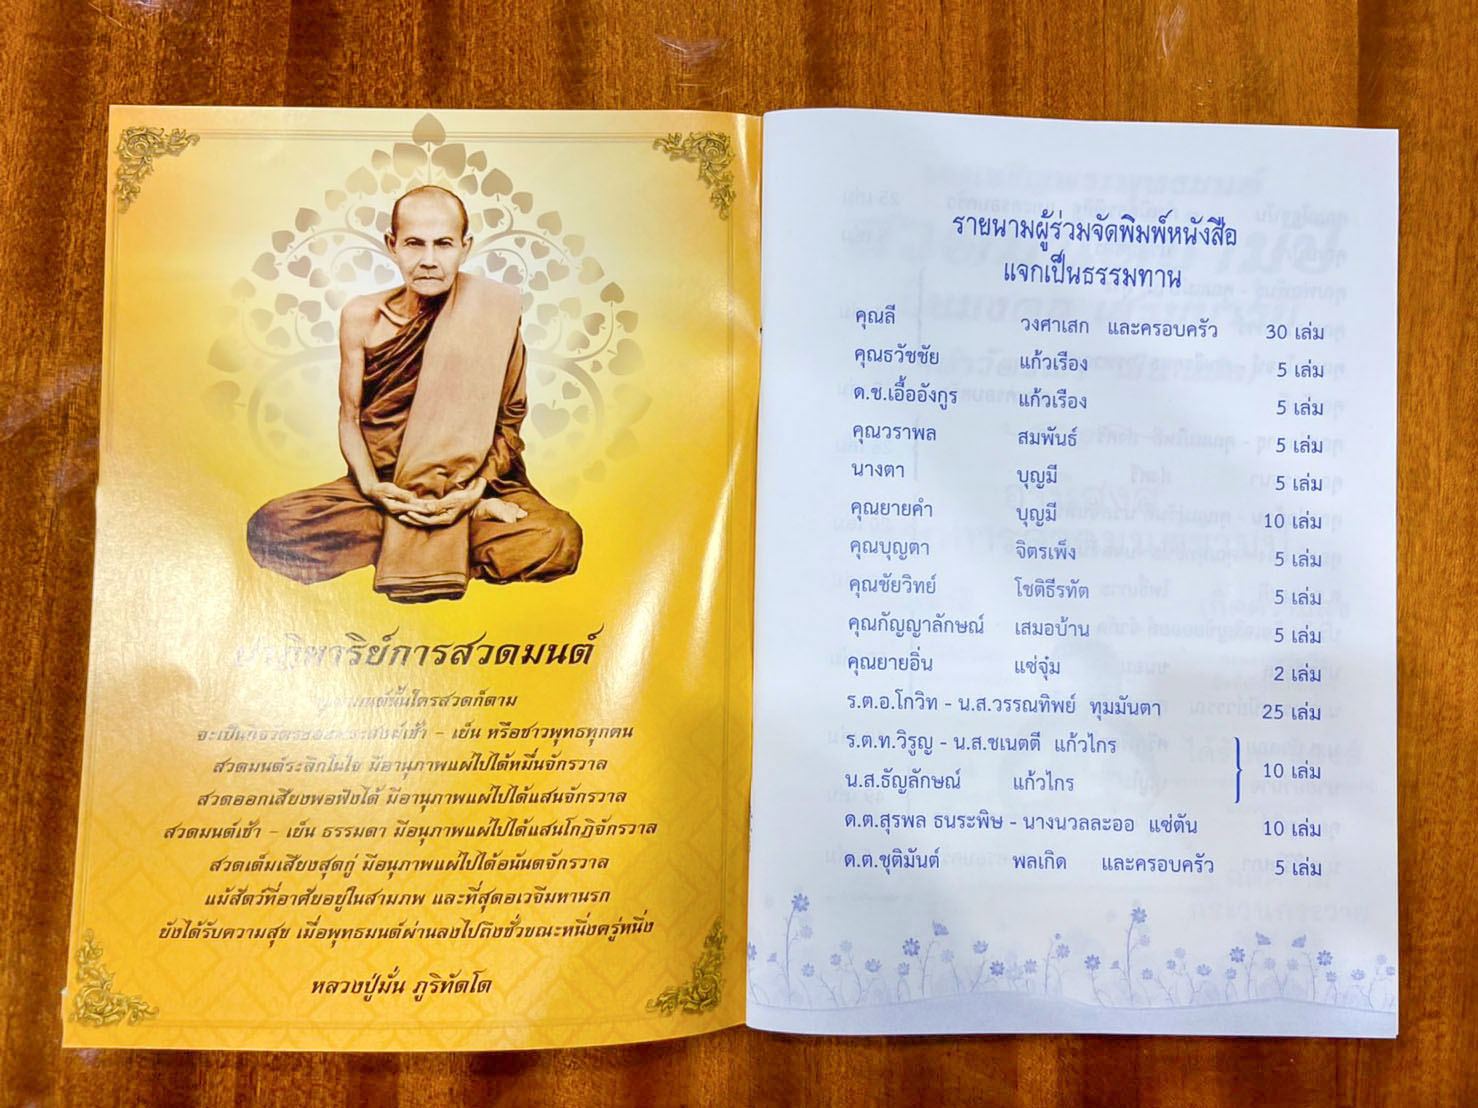 ปาฏิหาริย์การสวดมนต์
พุทธมนต์นั้นใครสวดก็ตาม
จะเป็นกิจวัตรของพระสงฆ์เช้า - เย็น หรือชาวพุทธทุกคน
สวดมนต์ระลึกในใจ มีอานุภาพแผ่ไปได้หมื่นจักรวาล
สวดออกเสียงพอฟังได้ มีอานุภาพแผ่ไปได้แสนจักรวาล
สวดมนต์เช้า - เย็น ธรรมดา มีอนุภาพแผ่ไปได้แสนโกฏิจักรวาล
สวดเต็มเสียงสุดกู่ มีอนุภาพแผ่ไปได้อนันตจักรวาล
แม้สัตว์ที่อาศัยอยู่ในสามภพ และที่สุดอเวจีมหานรก
ยังได้รับความสุข เมื่อพุทธมนต์ผ่านลงไปถึงชั่วขณะหนึ่งครู่หนึ่ง
หลวงปู่มั่น ภูริทัตโต
รายนามผู้ร่วมจัดพิมพ์หนังสือ
แจกเป็นธรรมทาน
คุณลี วงศาเสก และครอบครัว 30 เล่ม
คุณธวัชชัย แก้วเรือง 5 เล่ม
ด.ช.เอื้ออังกูร แก้วเรือง 5 เล่ม
คุณวราพล สมพันธ์ 5 เล่ม
นางตา บุญมี 5 เล่ม
คุณยายคำ บุญมี 10 เล่ม
คุณบุญตา จิตรเพ็ง 5 เล่ม
คุณชัยวิทย์ โชติธีรทัต 5 เล่ม
คุณกัญญาลักษณ์ เสมอบ้าน 5 เล่ม
คุณยายอิ่น แซ่จุ๋ม 2 เล่ม
ร.ต.อ.โกวิท - น.ส.วรรณทิพย์ ทุมมันตา 25 เล่ม
ร.ต.ท.วิรูญ - น.ส.ชเนตตี แก้วไกร
น.ส.ธัญลักษณ์ แก้วไกร 10 เล่ม
ด.ต.สุรพล ธนระพิษ - นางนวลละออ แซ่ตัน 10 เล่ม
ด.ต.ชุติมันต์ พลเกิด และครอบครัว 5 เล่ม